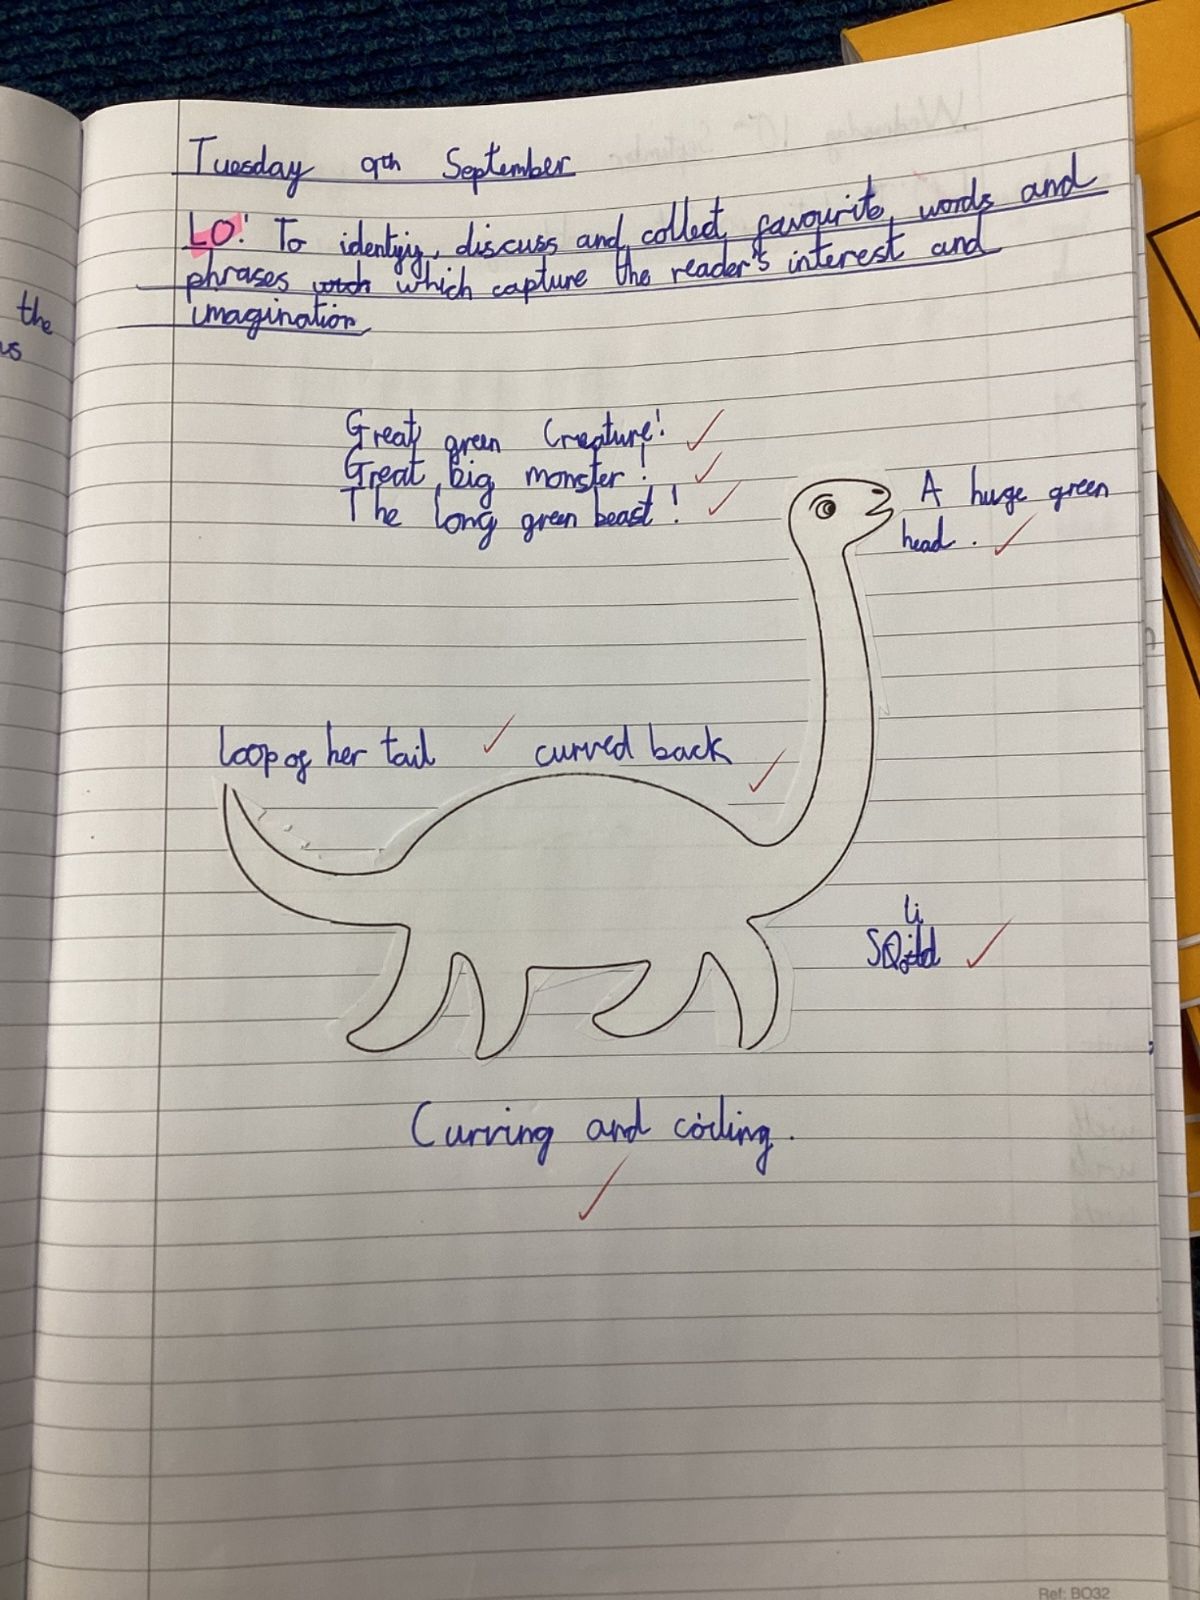 the
us
Tuesday 9th September
LO: To identify, discuss and collect favourite words and
phrases which which capture the reader's interest and
imagination
Great green Creature!
Great big monster!
The long green beast!
A huge green
head.
loop of her tail
curved back
li
Curving and coiling.
Ref: BO32